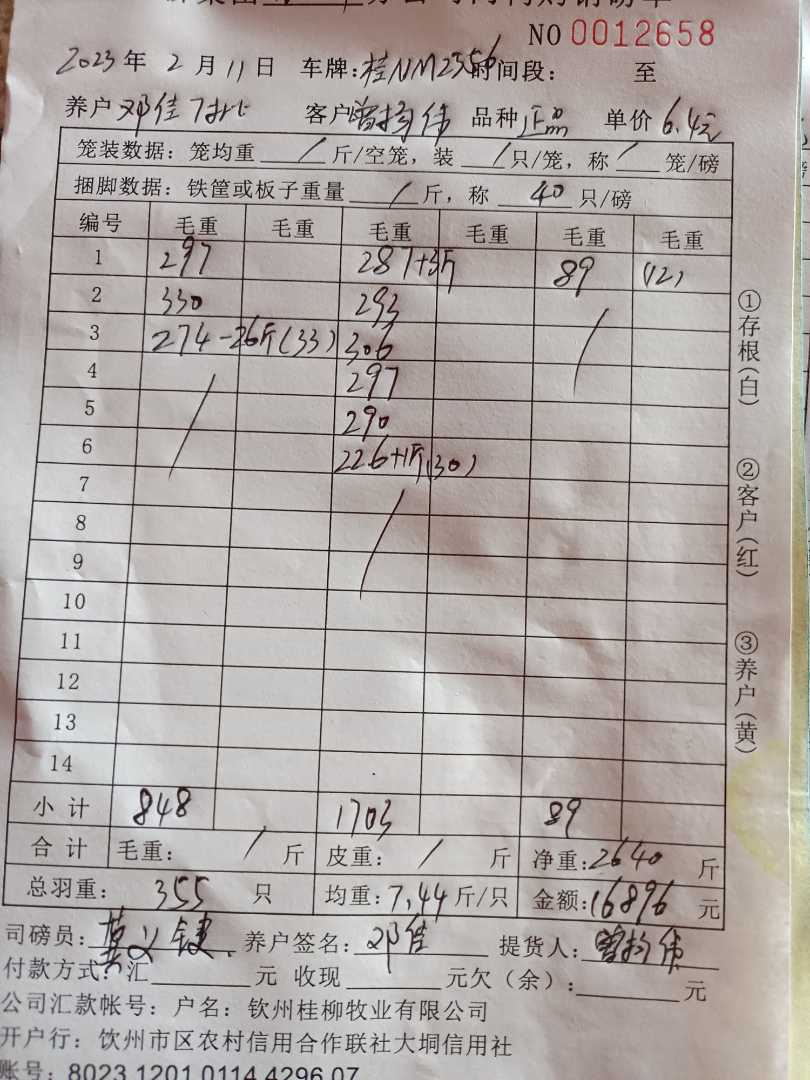 NO 0012658
2023年 2 月 11 日 车牌:桂NM2556 时间段: 至
养户 邓佳 客户 曾扬伟 品种 正品 单价 6.4元
笼装数据:笼均重 / 斤/空笼,装 / 只/笼,称 / 笼/磅
捆脚数据:铁筐或板子重量 / 斤,称 40 只/磅
编号 毛重 毛重 毛重 毛重 毛重 毛重
1 297 287+3斤 89 (12)
2 330 293 /
3 274-26斤(33) 306
4 / 297
5 290
6 226+1斤(30)
7 /
8
9
10
11
12
13
14
小计 848 1703 89
合计 毛重: / 斤 皮重: / 斤 净重:2640 斤
总羽重: 355 只 均重:7.44 斤/只 金额:16896 元
司磅员: 养户签名: 邓佳 提货人: 曾扬伟
付款方式:汇 元 收现 元欠(余): 元
公司汇款帐号:户名:钦州桂柳牧业有限公司
开户行:钦州市区农村信用合作联社大垌信用社
账号:8023 1201 0114 4296 07
①存根(白) ②客户(红) ③养户(黄)